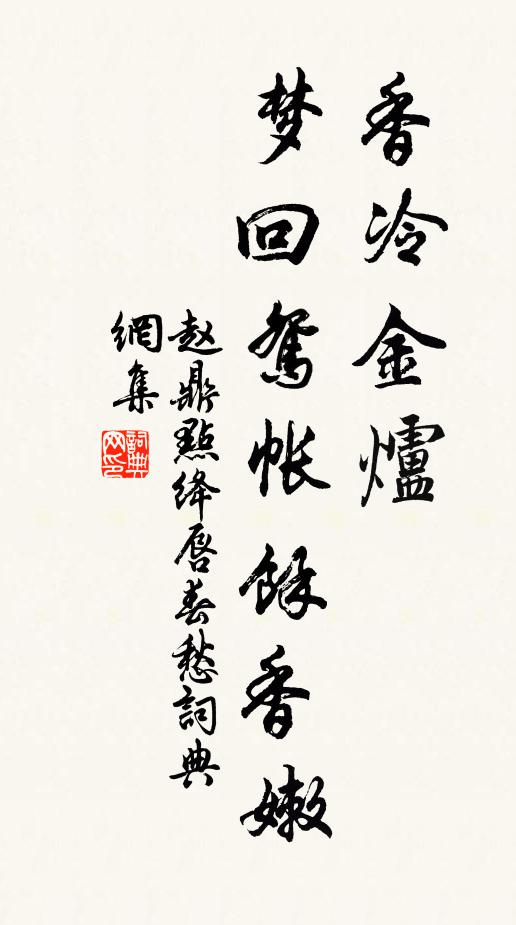 香冷金爐
梦回鸳帐餘香嫩
赵鼎點绛唇春愁詞典
網集
詞典網印